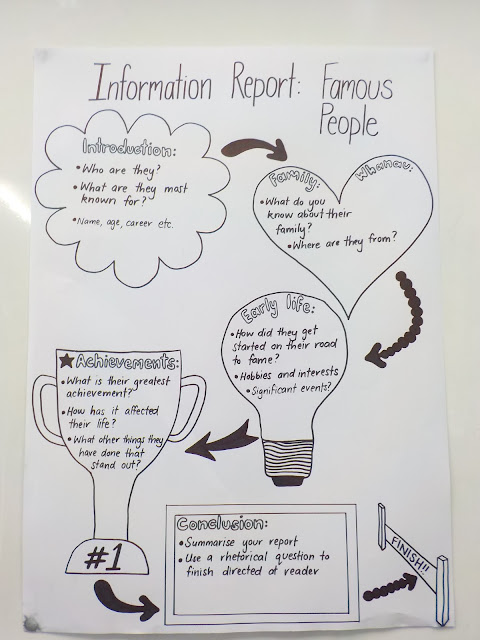 Information Report: Famous
People
Introduction:
• Who are they?
• What are they most
known for?
• Name, age, career etc.
Family:
Whanau:
• What do you
know about their
family?
• Where are they from?
Early life:
• How did they get
started on their road
to fame?
• Hobbies and interests
• Significant events?
★Achievements:
• What is their greatest
achievement?
• How has it affected
their life?
• What other things they
have done that
stand out?
#1
Conclusion:
• Summarise your report
• Use a rhetorical question to
finish directed at reader
FINISH!!